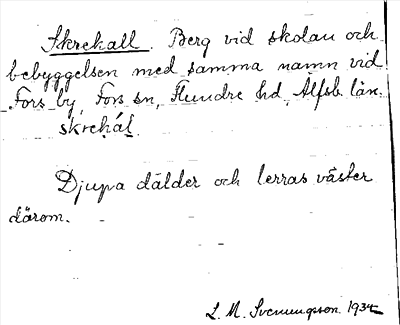 Skrekall. Berg vid skolan och
bebyggelsen med samma namn vid
Fors by, Fors sn, Flundre hd, Älfsb. län.
skrehál.
Djupa dälder och lerras väster
därom.
L. M. Svenungsson. 1934